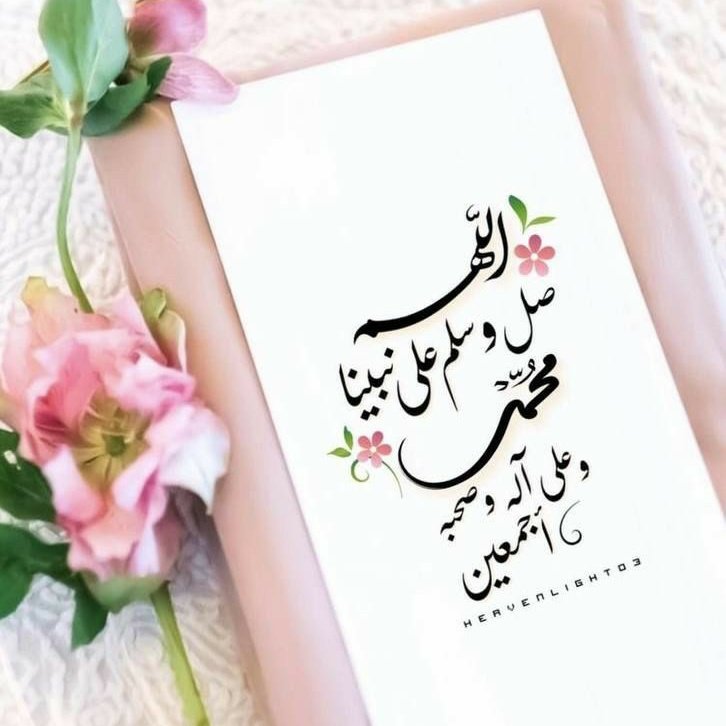 اللّهم
صل وسلم على نبينا
محُمّد
وعلى آله وصحبه
أجمعين
HERVENLIGHT03